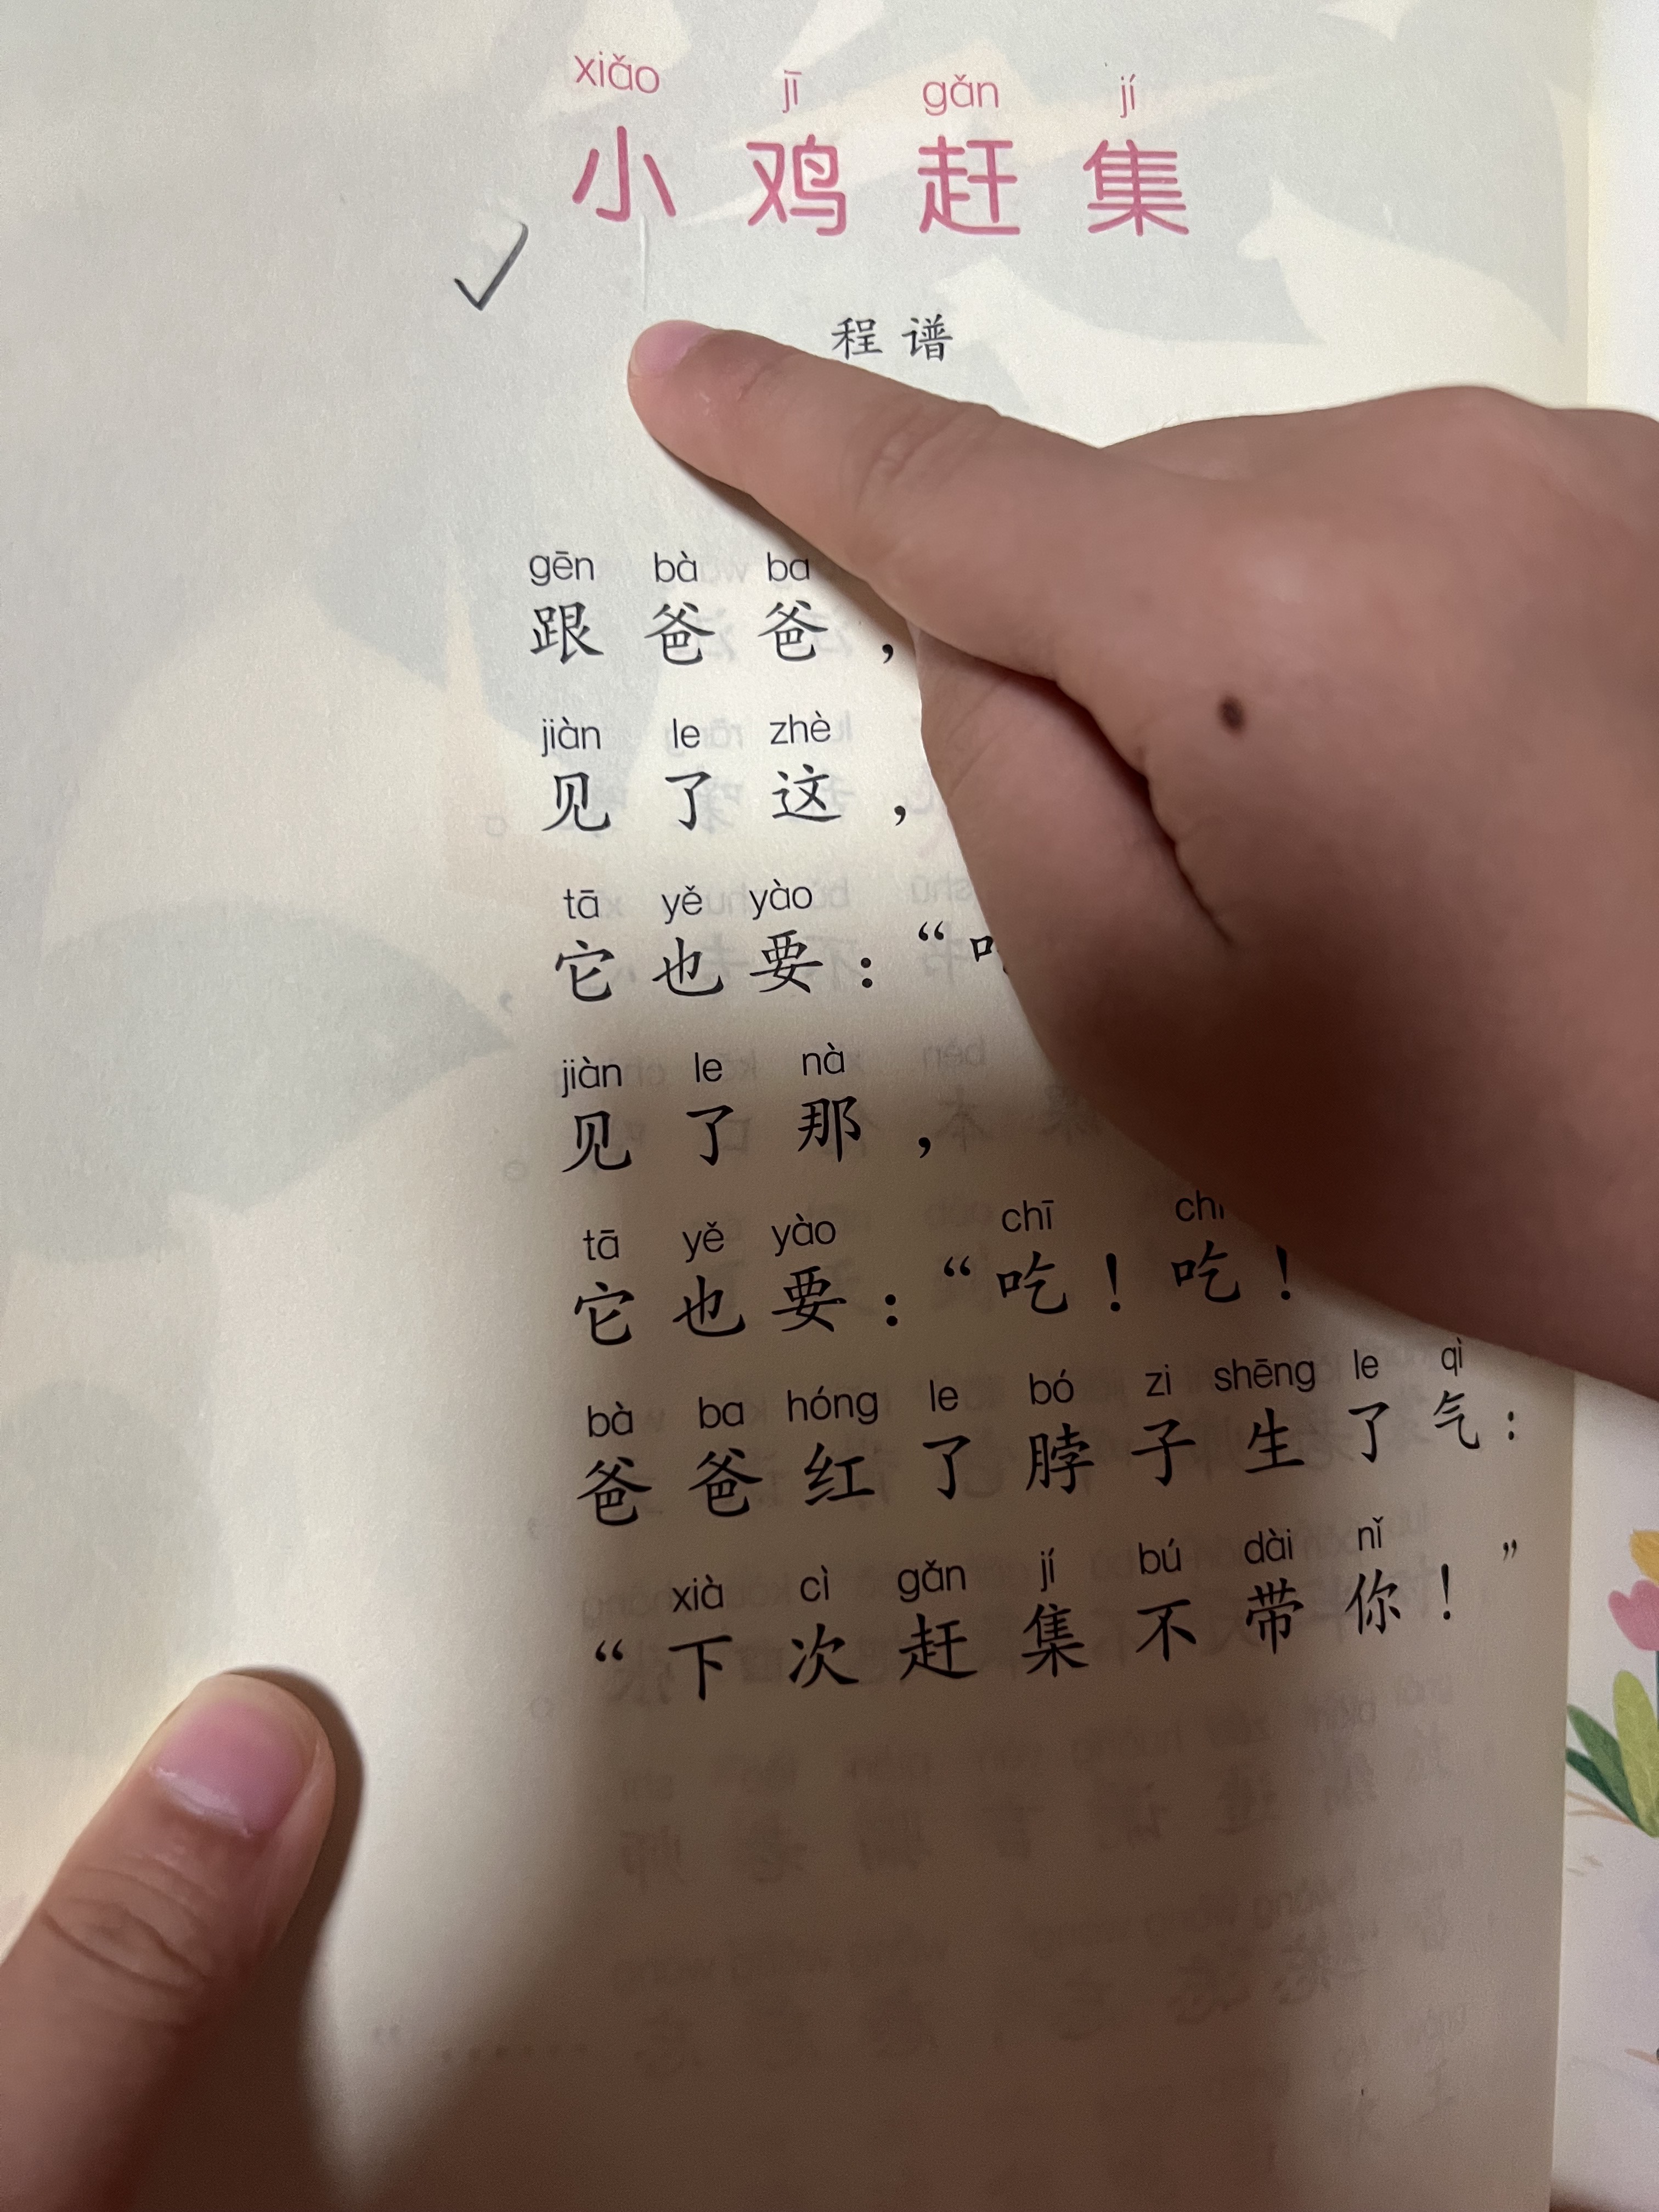 xiǎo jī gǎn jí
小鸡赶集
程谱
gēn bà ba
跟爸爸，
jiàn le zhè
见了这，
tā yě yào
它也要：“
jiàn le nà
见了那，
tā yě yào chī
它也要：“吃！吃！
bà ba hóng le bó zi shēng le qì
爸爸红了脖子生了气：
xià cì gǎn jí bú dài nǐ
“下次赶集不带你！”